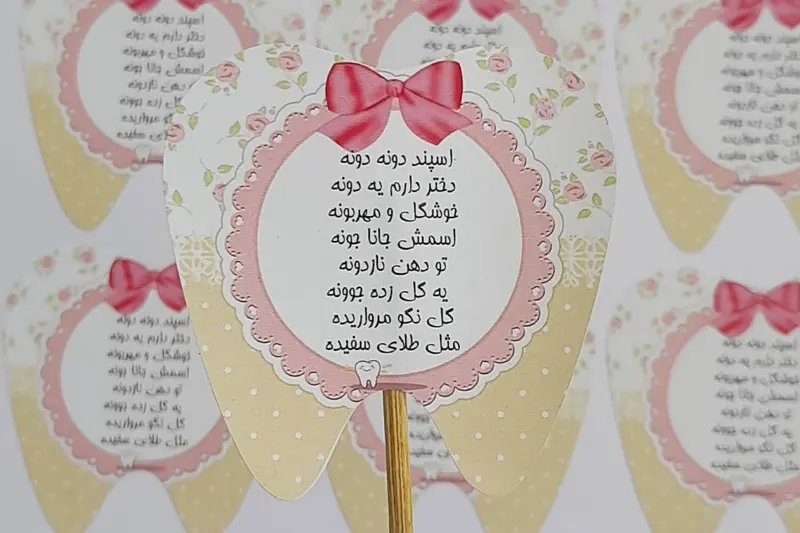 اسپند دونه دونه
دختر دارم یه دونه
خوشگل و مهربونه
اسمش جانا جونه
تو دهن نازدونه
یه گل زده جوونه
گل نگو مرواریده
مثل طلای سفیده